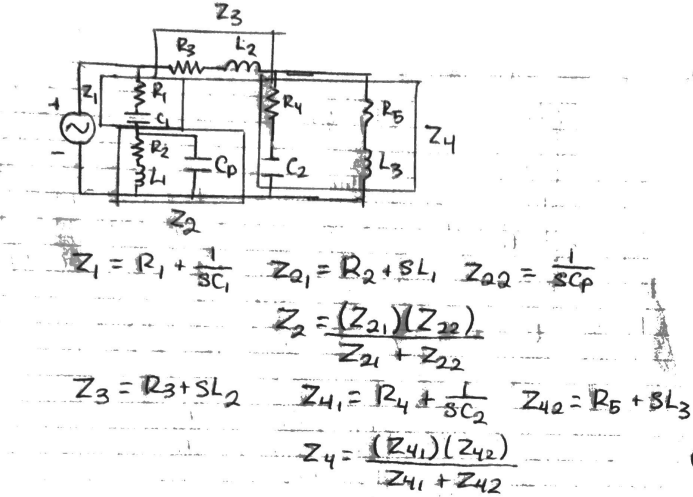 Z3
R3 L2
Z1 R1 R4 R5 Z4
+ C1
R2 Cp C2 L3
- L1
Z2
Z1 = R1 + 1/SC1 Z21 = R2 + SL1 Z22 = 1/SCp
Z2 = (Z21)(Z22) / Z21 + Z22
Z3 = R3 + SL2 Z41 = R4 + 1/SC2 Z42 = R5 + SL3
Z4 = (Z41)(Z42) / Z41 + Z42